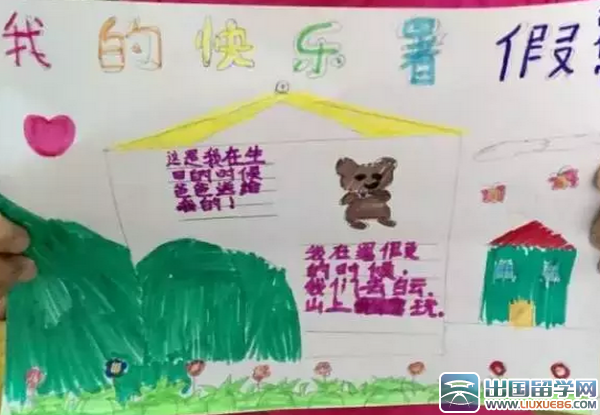 我的快乐署假
这是我在生
日的时候
爸爸送给
我的！
我在暑假
的时候，
我们去白云
山上玩.
出国留学网
WWW.LIUXUE86.COM